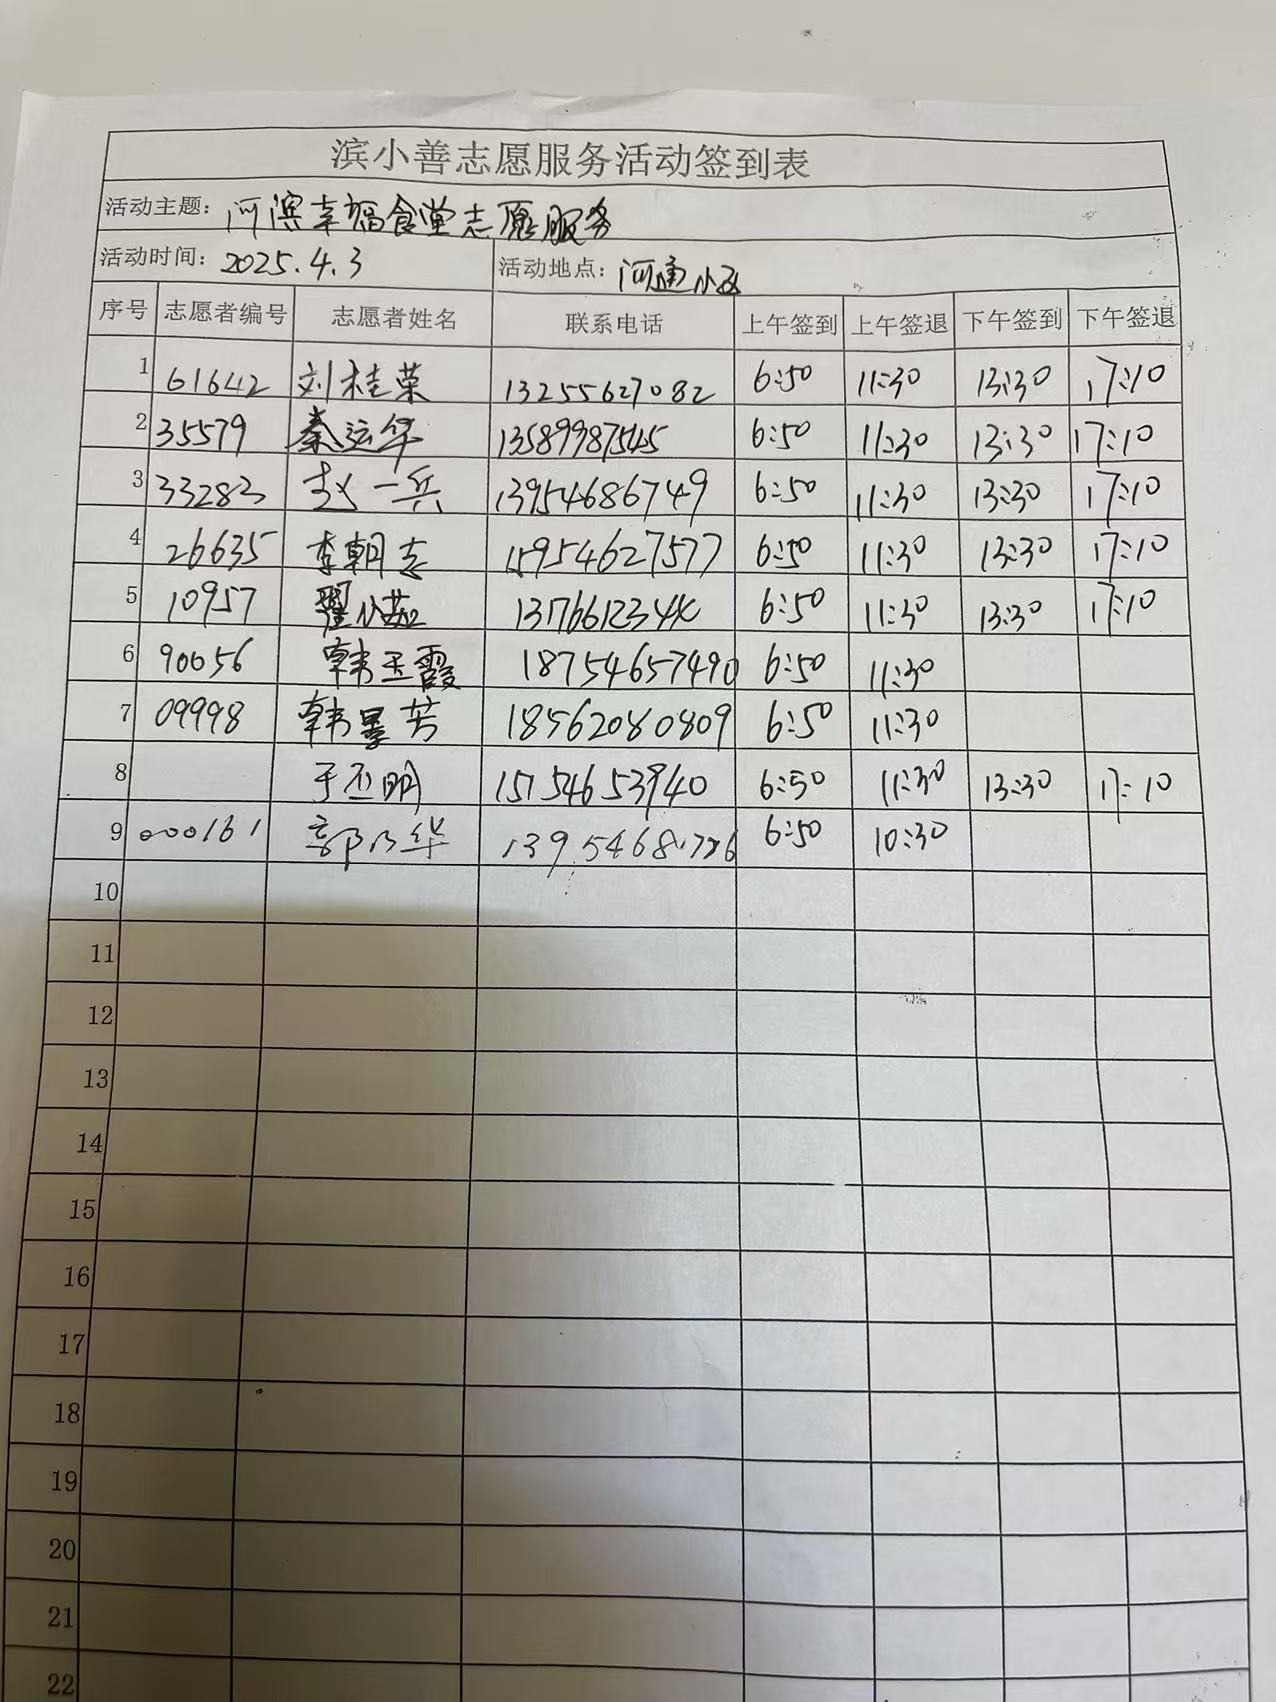 滨小善志愿服务活动签到表
活动主题: 河滨幸福食堂志愿服务
活动时间: 2025.4.3 活动地点: 河通小区
序号 志愿者编号 志愿者姓名 联系电话 上午签到 上午签退 下午签到 下午签退
1 61642 刘桂荣 13255627082 6:50 11:30 13:30 17:10
2 35579 秦运华 13589987545 6:50 11:30 13:30 17:10
3 33283 赵一兵 13954686749 6:50 11:30 13:30 17:10
4 26635 李朝志 15954627577 6:50 11:30 13:30 17:10
5 10957 翟小茹 6:50 11:30 13:30 17:10
6 90056 韩玉霞 18754657490 6:50 11:30
7 09998 韩景芳 18562080809 6:50 11:30
8 于丕明 15754653940 6:50 11:30 13:30 17:10
9 000161 郭乃华 6:50 10:30
10
11
12
13
14
15
16
17
18
19
20
21
22